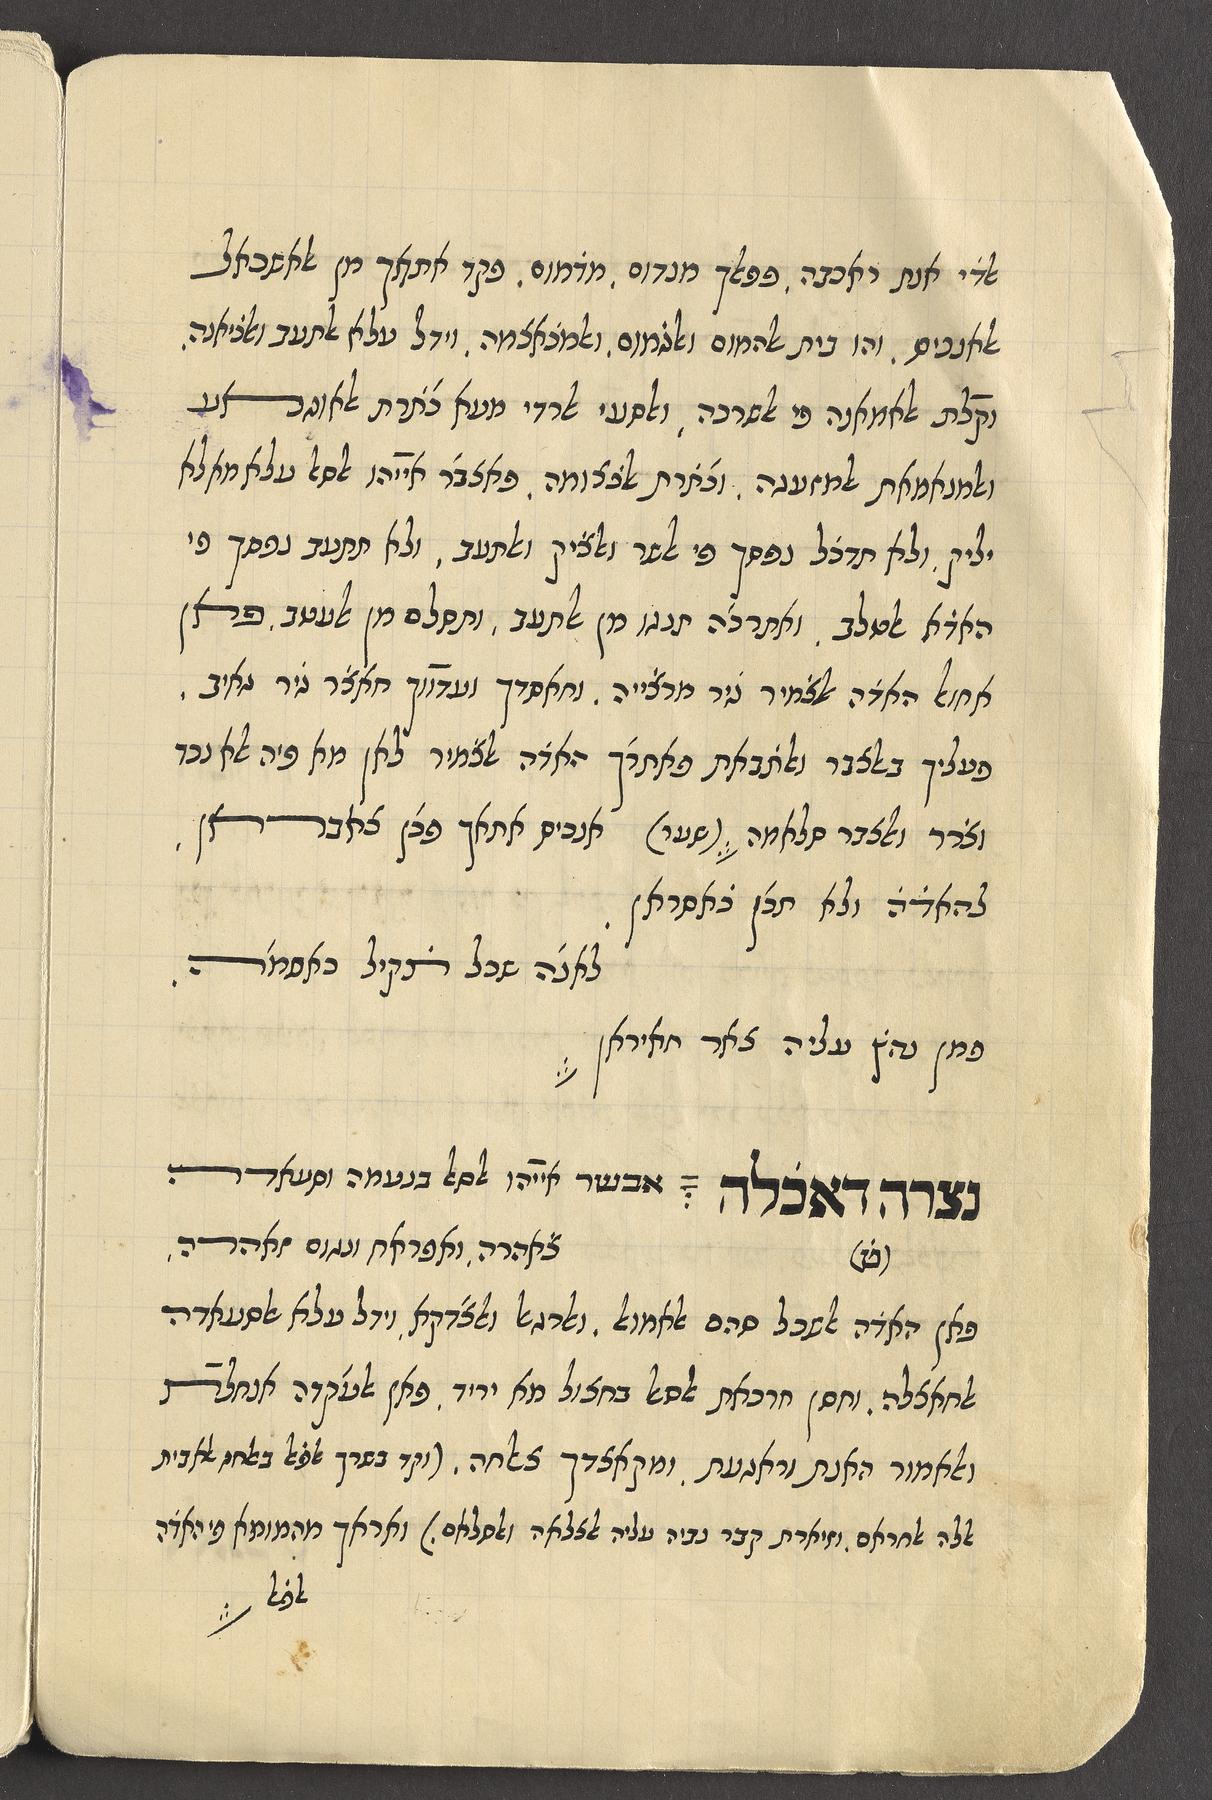 אלדׄי אנת ראכבה, פפאלך מנדוס, מדׄמום, פקד אתאך מן אלאשכאל
אלאנכיס, והו בית אלהמום ואלגׄמום, ואלמכׄאצמה, וידל עלא אלתעב ואלכׄיאנה,
וקלّת אלאמאנה פי אלשרכה, ואלסעי אלרדי מעא כתׄרת אלאוגאע
ואלמנאמאת אלמזעגה, וכתׄרת אלכׄצומה, פאצבר אייّהו אלסאל עלא מא לא
יליק, ולא תדכׄל נפסך פי אלשר ואלצׄיק ואלתעב, ולא תתעב נפסך פי
האדׄא אלטלב, ואתרכׄה תנגו מן אלתעב, ותסלם מן אלעטב, פאן
אחואל האדׄה אלצׄמיר גׄיר מרצׄייה, וחאסדך ועדווّך חאצׄר גׄיר גׄאיב,
פעליך באלצבר ואלתׄבאת פאתרך האדׄה אלצׄמיר לאן מא פיה אלא נכד
וצׄרר ואלצבר סלאמה (שער) אנכיס אתאך פכׄן צאבראן,
להאדׄה ולא תכׄן כׄאסראן,
לאנّה שכל תׄקיל כאסמׄה,
פמן נהץׄ עליה צאר חאיראן
נצרה דאכׄלה אבשר אייّהו אלסאל בנעמה וסעאדה
(ט) צׄאהרה, ואפראח ונגום זאהרה,
פאן האדׄה אלשכל סהם אלאמואל, ואלרגא ואלצׄדקא, וידל עלא אלסעאדה
אלחאצלה, וחסן חרכאת אלסאל בחצול מא יריד, פאן אלעׄקדה אנחלّת
ואלאמור האנת וראגעת, ומקאצדך צאלחה, (וקד בשרך אלפאל באלחג אלא בית
אללה אלחראם, וזיארת קבר נביה עליה אלצלאה ואלסלאם,) ואראך מהמומא פי האדׄה
אלפאל